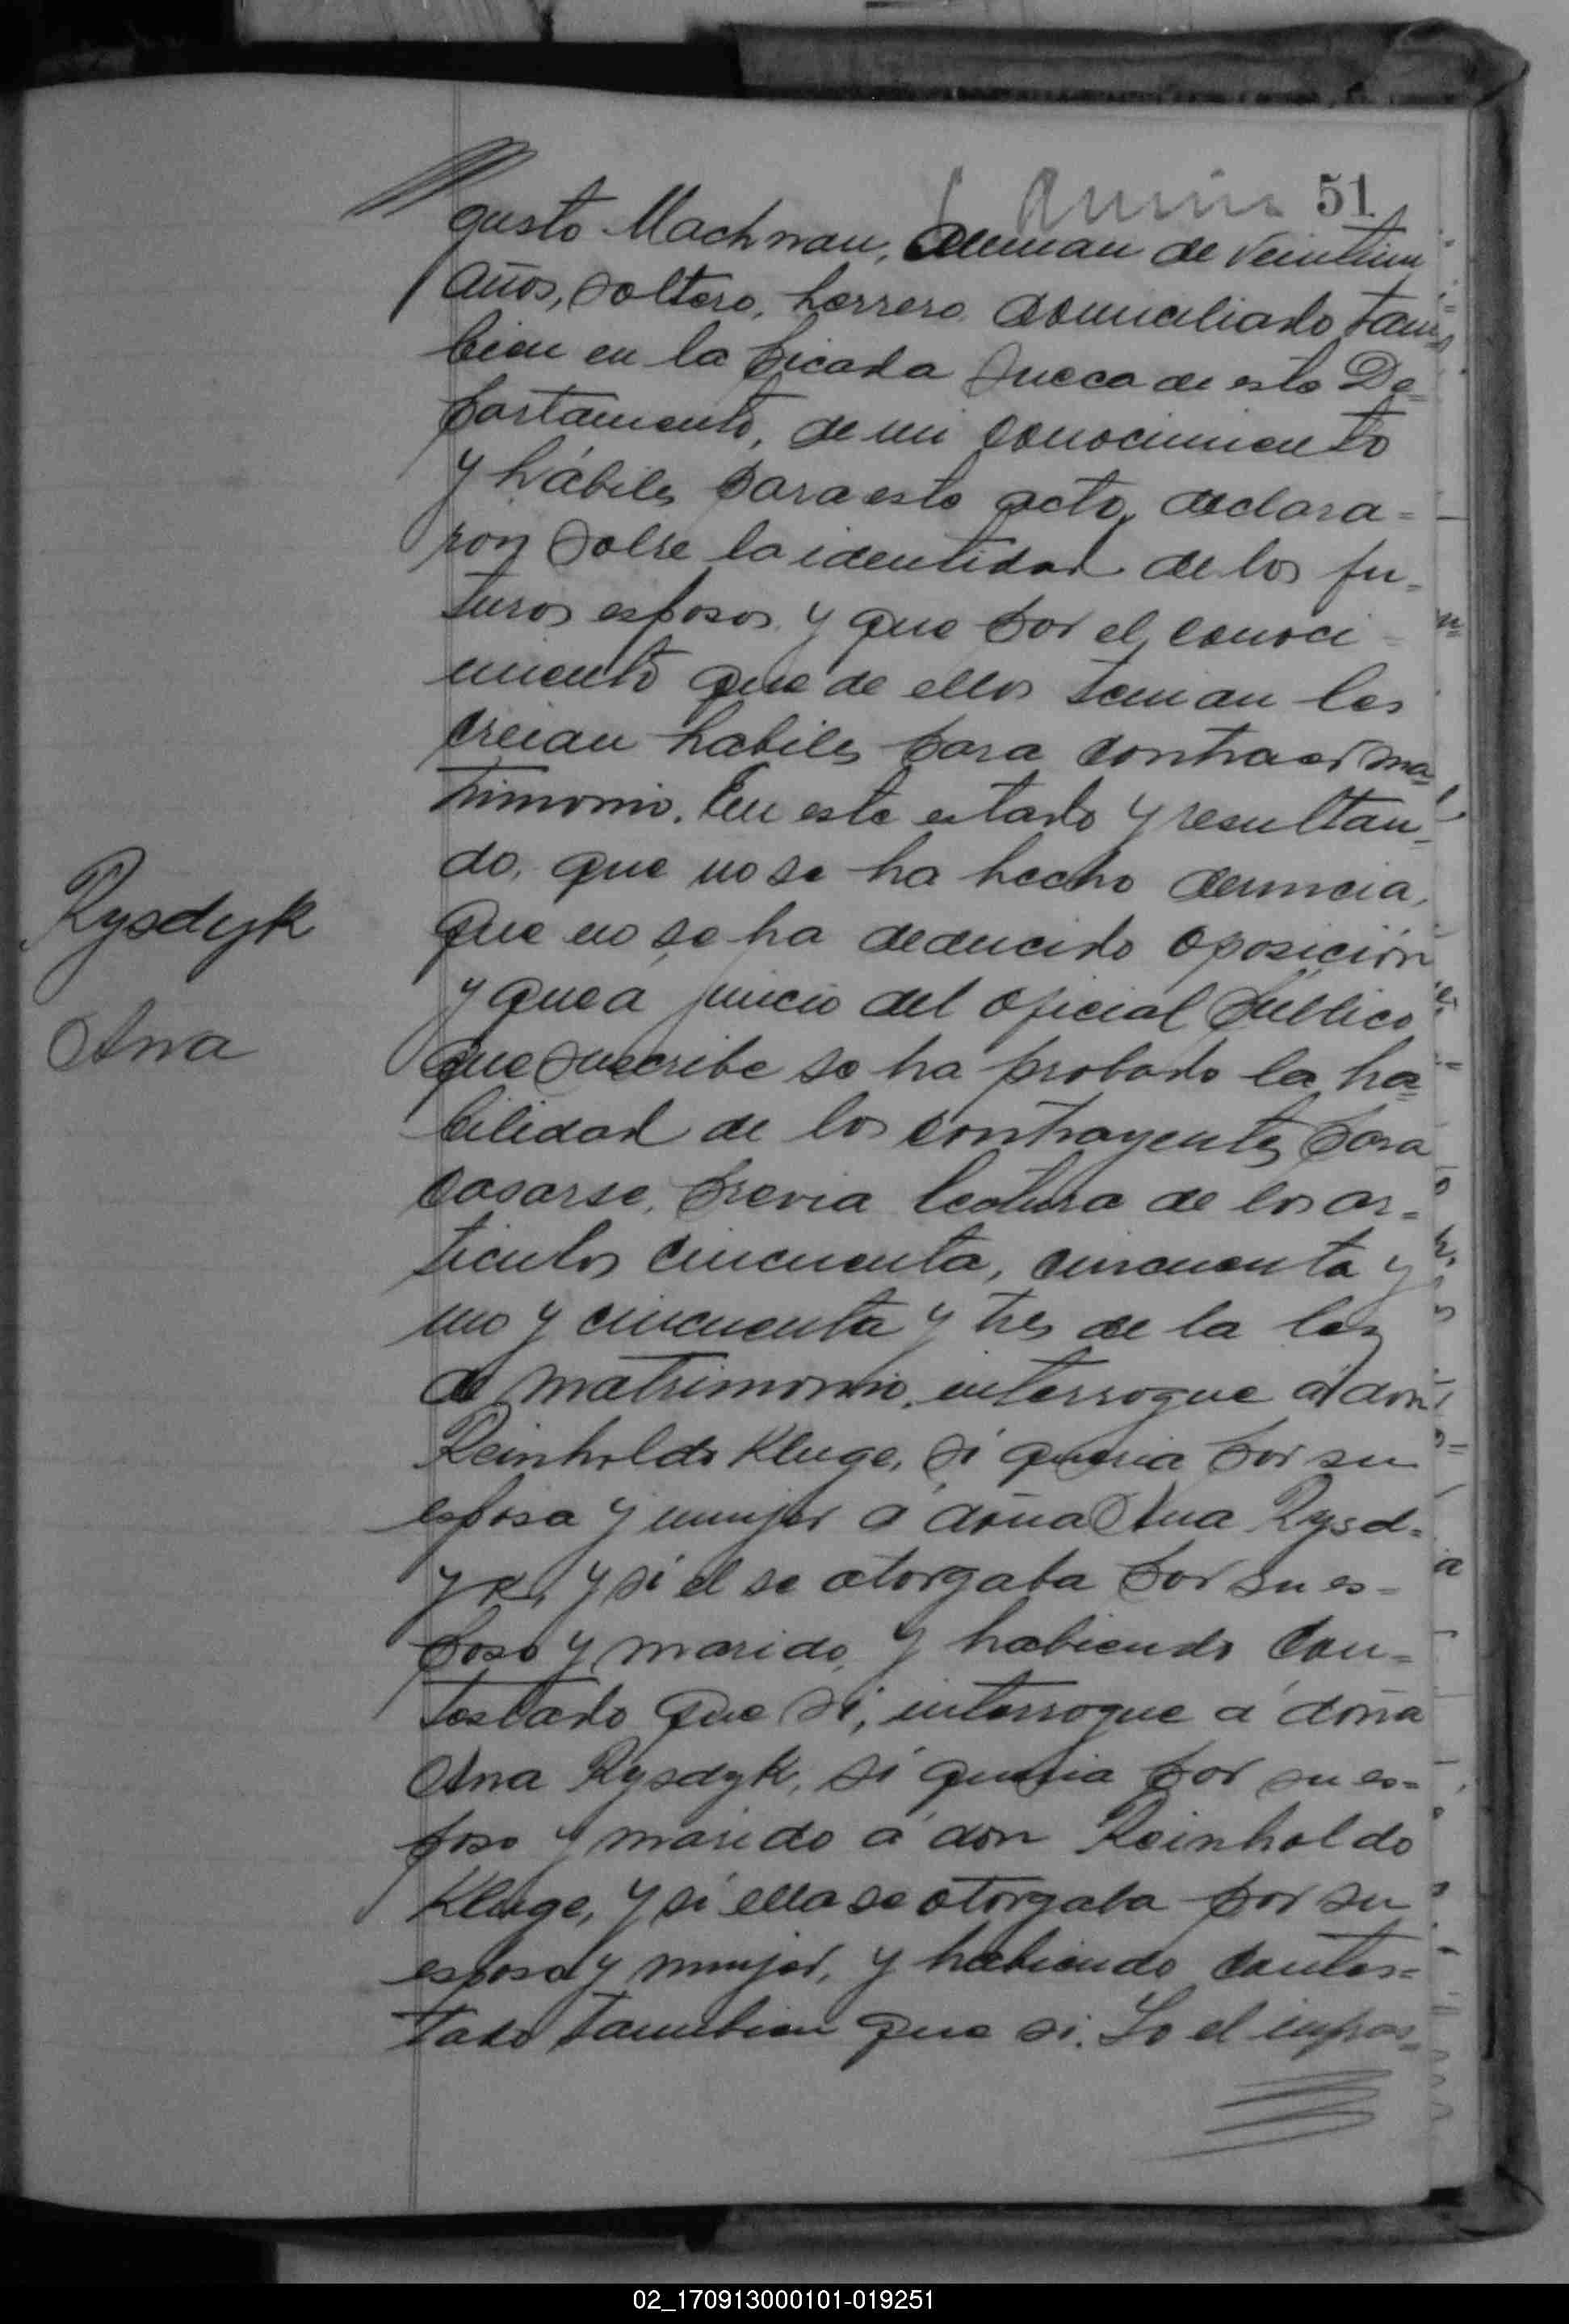 51
gusto Machnau, Aleman de veintiun
años, soltero, herrero domiciliado tam
bien en la Picada Sueca de este De=
partamento, de mi conocimiento
y hábiles para este acto, declara=
ron sobre la identidad de los fu=
turos esposos y que por el conoci=
miento que de ellos tenian los
creian habiles para contraer ma=
trimonio. En este estado y resultan=
do, que no se ha hecho denuncia,
que no se ha deducido oposición
y que a juicio del oficial Público
que suscribe se ha probado la ha=
bilidad de los contrayentes para
casarse, previa lectura de los ar=
ticulos cincuenta, cincuenta y
uno y cincuenta y tres de la ley
de matrimonio, interrogue a don
Reinholdo Kluge, si queria por su
esposa y mujer á doña Ana Rysd=
yk, y si el se otorgaba por su es=
poso y marido, y habiendo con=
testado que si, interrogue á doña
Ana Rysdyk, si queria por su es=
poso y marido á don Reinholdo
Kluge, y si ella se otorgaba por su
esposa y mujer, y habiendo contes=
tado tambien que si. Yo el infras=
Rysdyk
Ana
02_170913000101-019251